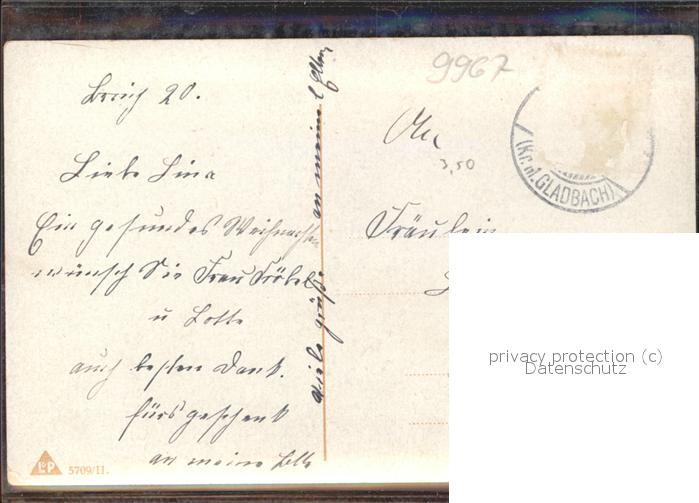 9967
Breich 20.
An
3,50
(Kr. M. GLADBACH)
Liebe Lina
Fräulein
Ein gesundes Weihnachten
wünsch Die Frau
u Lotte
auch besten Dank.
fürs geschenk
an meine
viele grüße an meine l
L&P 5709/II.
privacy protection (c)
Datenschutz